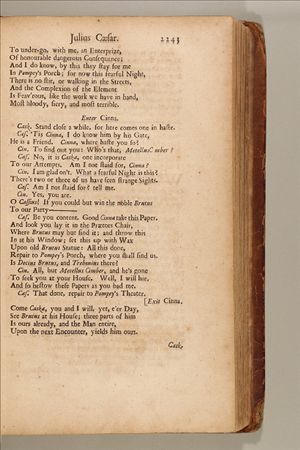 Julius Cæsar. 2243
To under-go, with me, an Enterprize,
Of honourable dangerous Consequence;
And I do know, by this they stay for me
In Pompey's Porch; for now this fearful Night,
There is no stir, or walking in the Streets,
And the Complexion of the Element
Is Fear'rous, like the work we have in hand,
Most bloody, fiery, and most terrible.
Enter Cinna.
Cask. Stand close a while, for here comes one in haste.
Cas. 'Tis Cinna, I do know him by his Gate,
He is a Friend. Cinna, where haste you so?
Cin. To find out you: Who's that, Metellus Cimber?
Cas. No, it is Caska, one incorporate
To our Attempts. Am I not staid for, Cinna?
Cin. I am glad on't. What a fearful Night is this?
There's two or three of us have seen strange Sights.
Cas. Am I not staid for? tell me.
Cin. Yes, you are.
O Cassius! If you could but win the noble Brutus
To our Party———
Cas. Be you content. Good Cinna take this Paper,
And look you lay it in the Prætors Chair,
Where Brutus may but find it; and throw this
In at his Window; set this up with Wax
Upon old Brutus Statue: All this done,
Repair to Pompey's Porch, where you shall find us.
Is Decius Brutus, and Trebonius there?
Cin. All, but Metellus Cimber, and he's gone
To seek you at your House. Well, I will hie,
And so bestow these Papers as you bad me.
Cas. That done, repair to Pompey's Theater.
[Exit Cinna.
Come Caska, you and I will, yet, e'er Day,
See Brutus at his House; three parts of him
Is ours already, and the Man entire,
Upon the next Encounter, yields him ours.
Cask.